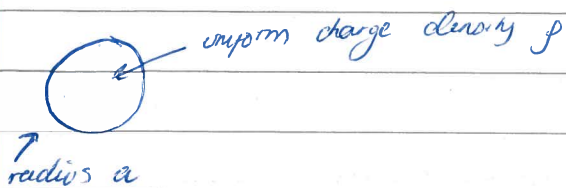 uniform charge density ρ
radius a